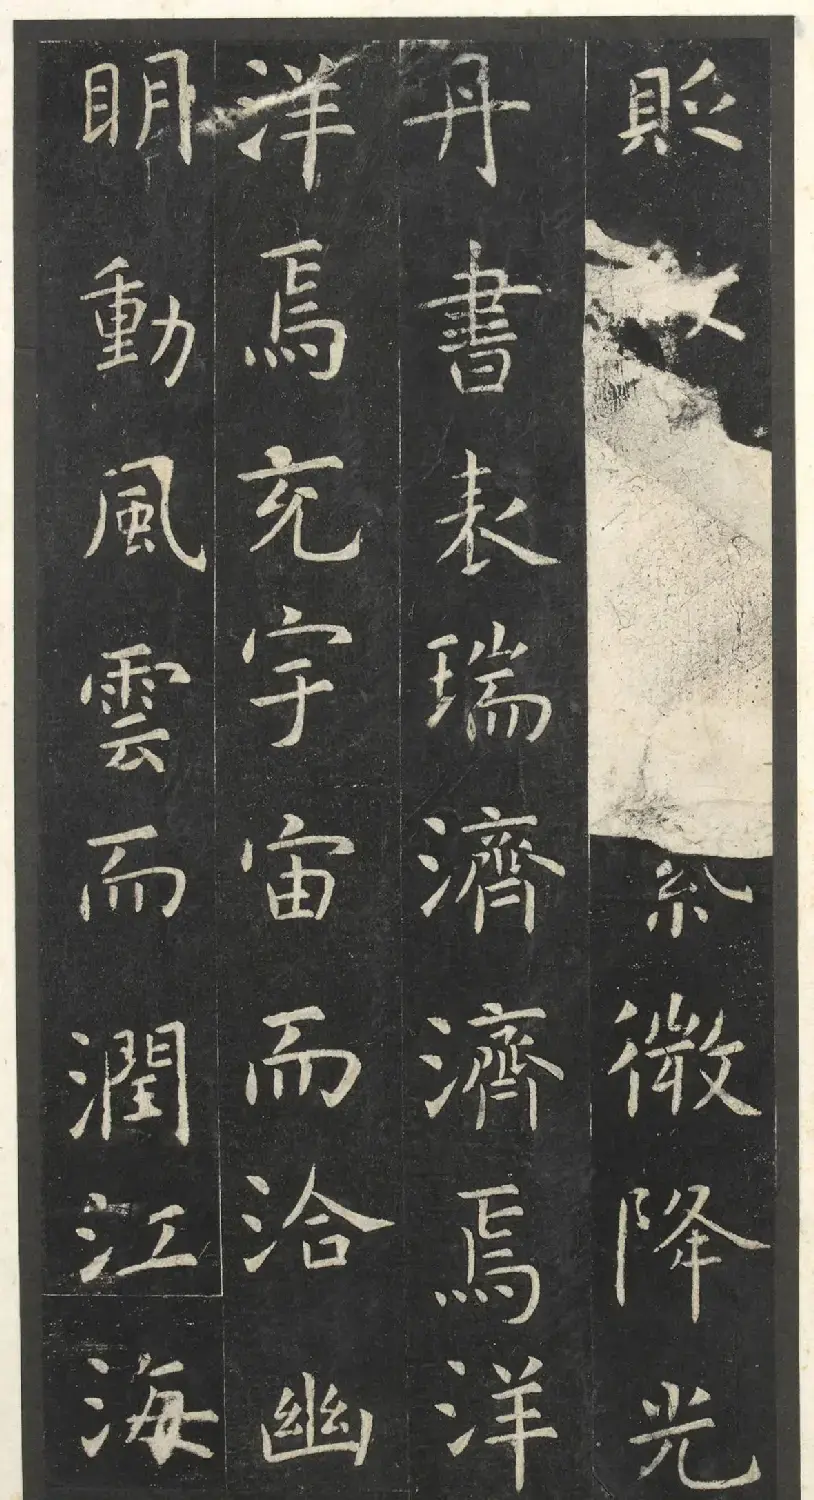 貶微降光
丹書表瑞濟濟焉洋
洋焉充宇宙而洽幽
明動風雲而潤江海